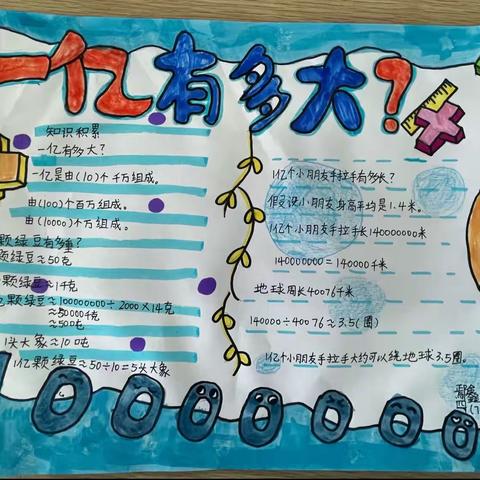 一亿有多大?
知识积累
一亿有多大?
一亿是由(10)个千万组成。
由(100)个百万组成。
由(10000)个万组成。
颗绿豆有多重?
颗绿豆≈50克
颗绿豆≈14克
颗绿豆≈100000000÷2000×14克
≈50000千克
≈50吨
1头大象≈10吨
1亿颗绿豆≈50÷10=5头大象
1亿个小朋友手拉手有多长?
假设小朋友身高平均是1.4米。
1亿个小朋友手拉手长140000000米
140000000=140000千米
地球周长40076千米
140000÷40076≈3.5(圈)
1亿个小朋友手拉手大约可以绕地球3.5圈。
100000000